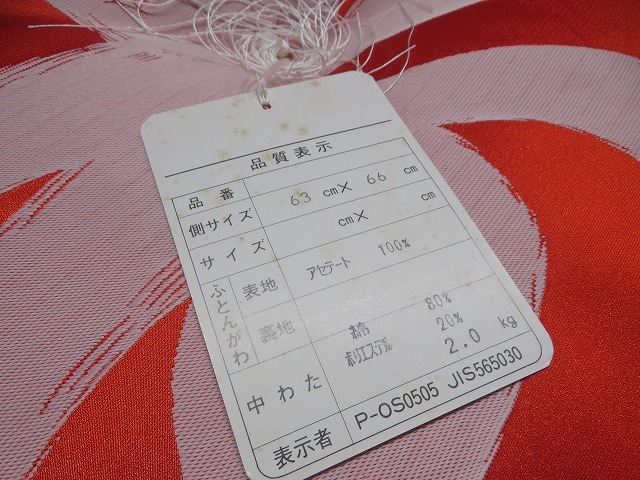 品質表示
品番
側サイズ 63 cm× 66 cm
サイズ cm× cm
ふとんがわ
表地 アセテート 100%
裏地
中わた 綿 80%
ポリエステル 20%
2.0 kg
表示者 P-OS0505 JIS565030